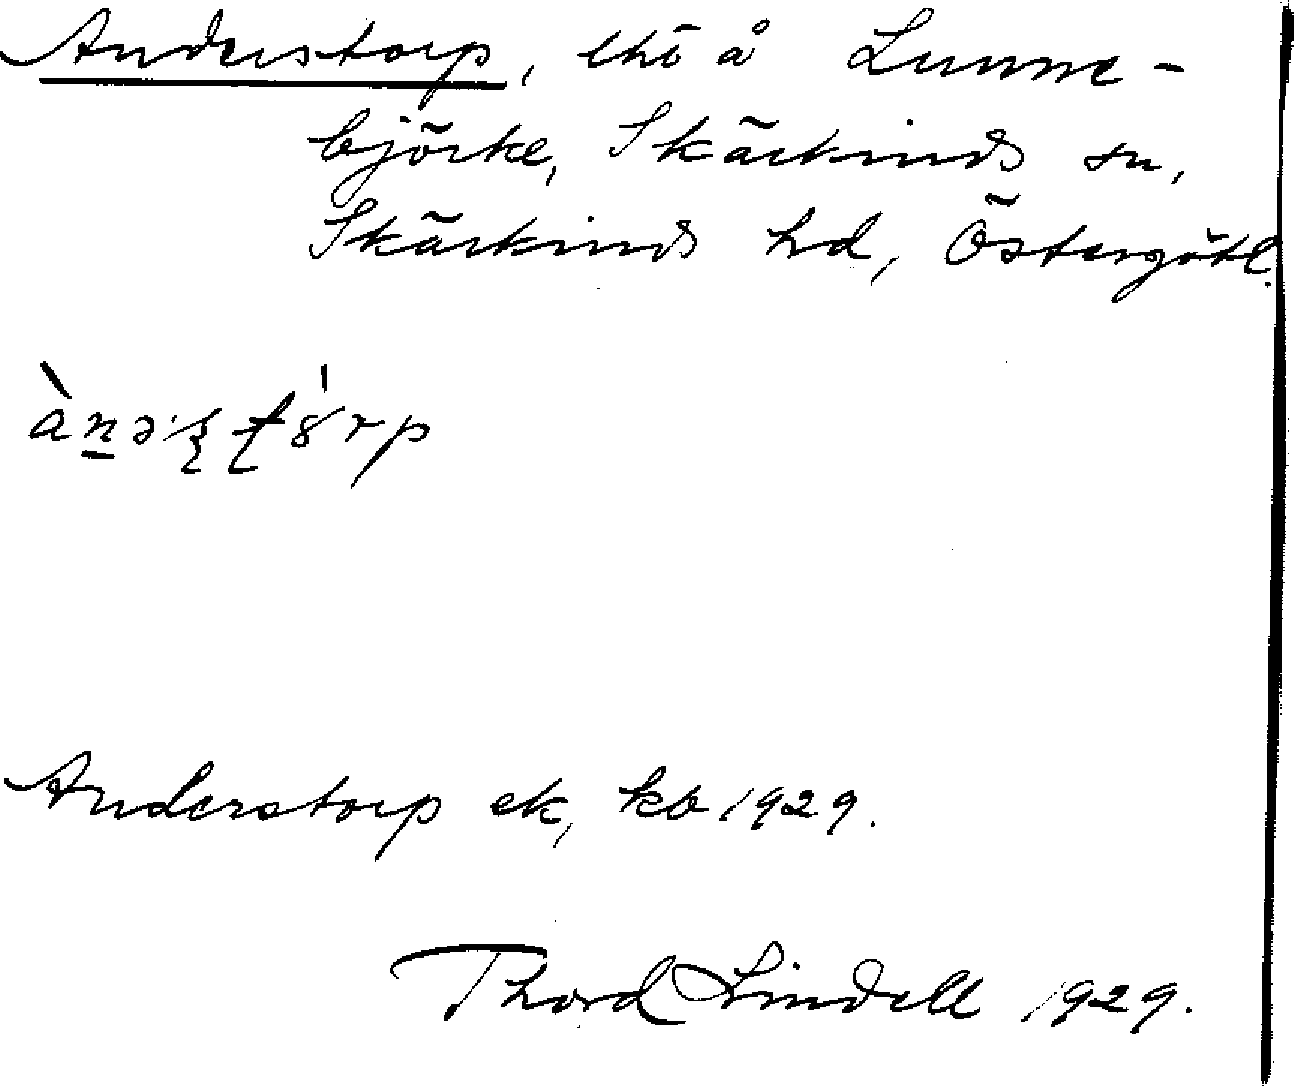 Anderstorp, lhö å Lunne-
björke, Skärkinds sn,
Skärkinds hd, Östergötl.
Anderstorp ek, kb 1929.
Thord Lindell 1929.